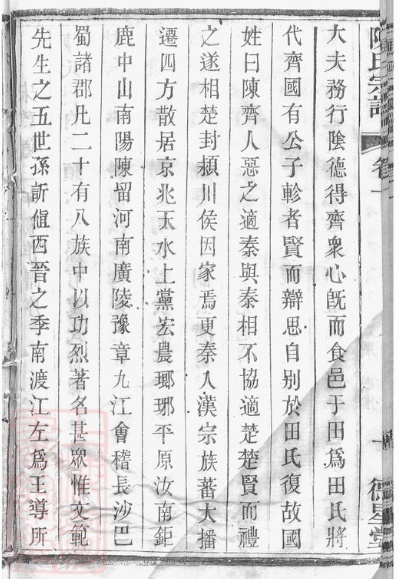 陳氏宗譜
卷一
一
德星堂
大夫務行陰德得齊衆心旣而食邑于田爲田氏將
代齊國有公子軫者賢而辯思自别於田氏復故國
姓曰陳齊人惡之適秦與秦相不協適楚楚賢而禮
之遂相楚封潁川侯因家焉更秦入漢宗族蕃大播
遷四方散居京兆天水上黨宏農瑯琊平原汝南鉅
鹿中山南陽陳留河南廣陵豫章九江會稽長沙巴
蜀諸郡凡二十有八族中以功烈著名甚眾惟文範
先生之五世孫訢值西晉之季南渡江左爲王導所